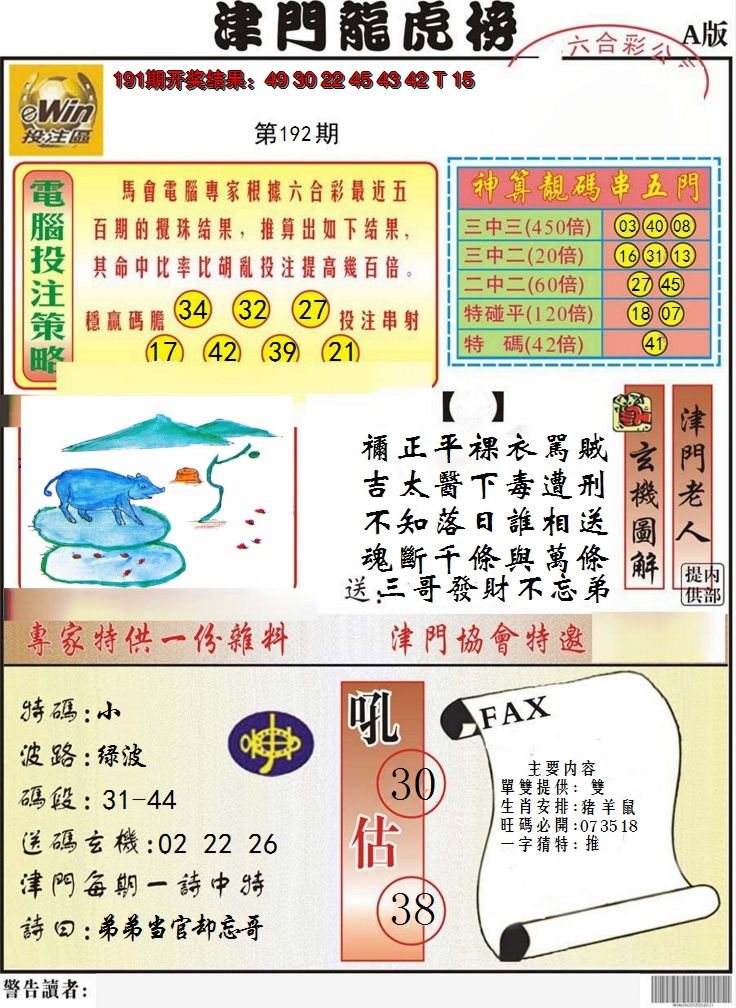 津門龍虎榜
A版
六合彩公
191期开奖结果：49 30 22 45 43 42 T 15
eWin
投注區
第192期
電腦投注策略
馬會電腦專家根據六合彩最近五
百期的攪珠结果，推算出如下结果，
其命中比率比胡亂投注提高幾百倍。
穩贏碼膽 34 32 27 投注串射
17 42 39 21
神算靚碼串五門
三中三(450倍) 03 40 08
三中二(20倍) 16 31 13
二中二(60倍) 27 45
特碰平(120倍) 18 07
特 碼(42倍) 41
【 】
禰正平裸衣罵賊
吉太醫下毒遭刑
不知落日誰相送
魂斷千條與萬條
送：三哥發財不忘弟
玄機圖解
津門老人
内部提供
專家特供一份雜料
津門協會特邀
特碼：小
波路：绿波
碼段：31-44
送碼玄機：02 22 26
津門每期一詩中特
詩曰：弟弟当官却忘哥
吼
30
估
38
FAX
主要内容
單雙提供：雙
生肖安排：豬羊鼠
旺碼必開：073518
一字猜特：推
警告讀者：